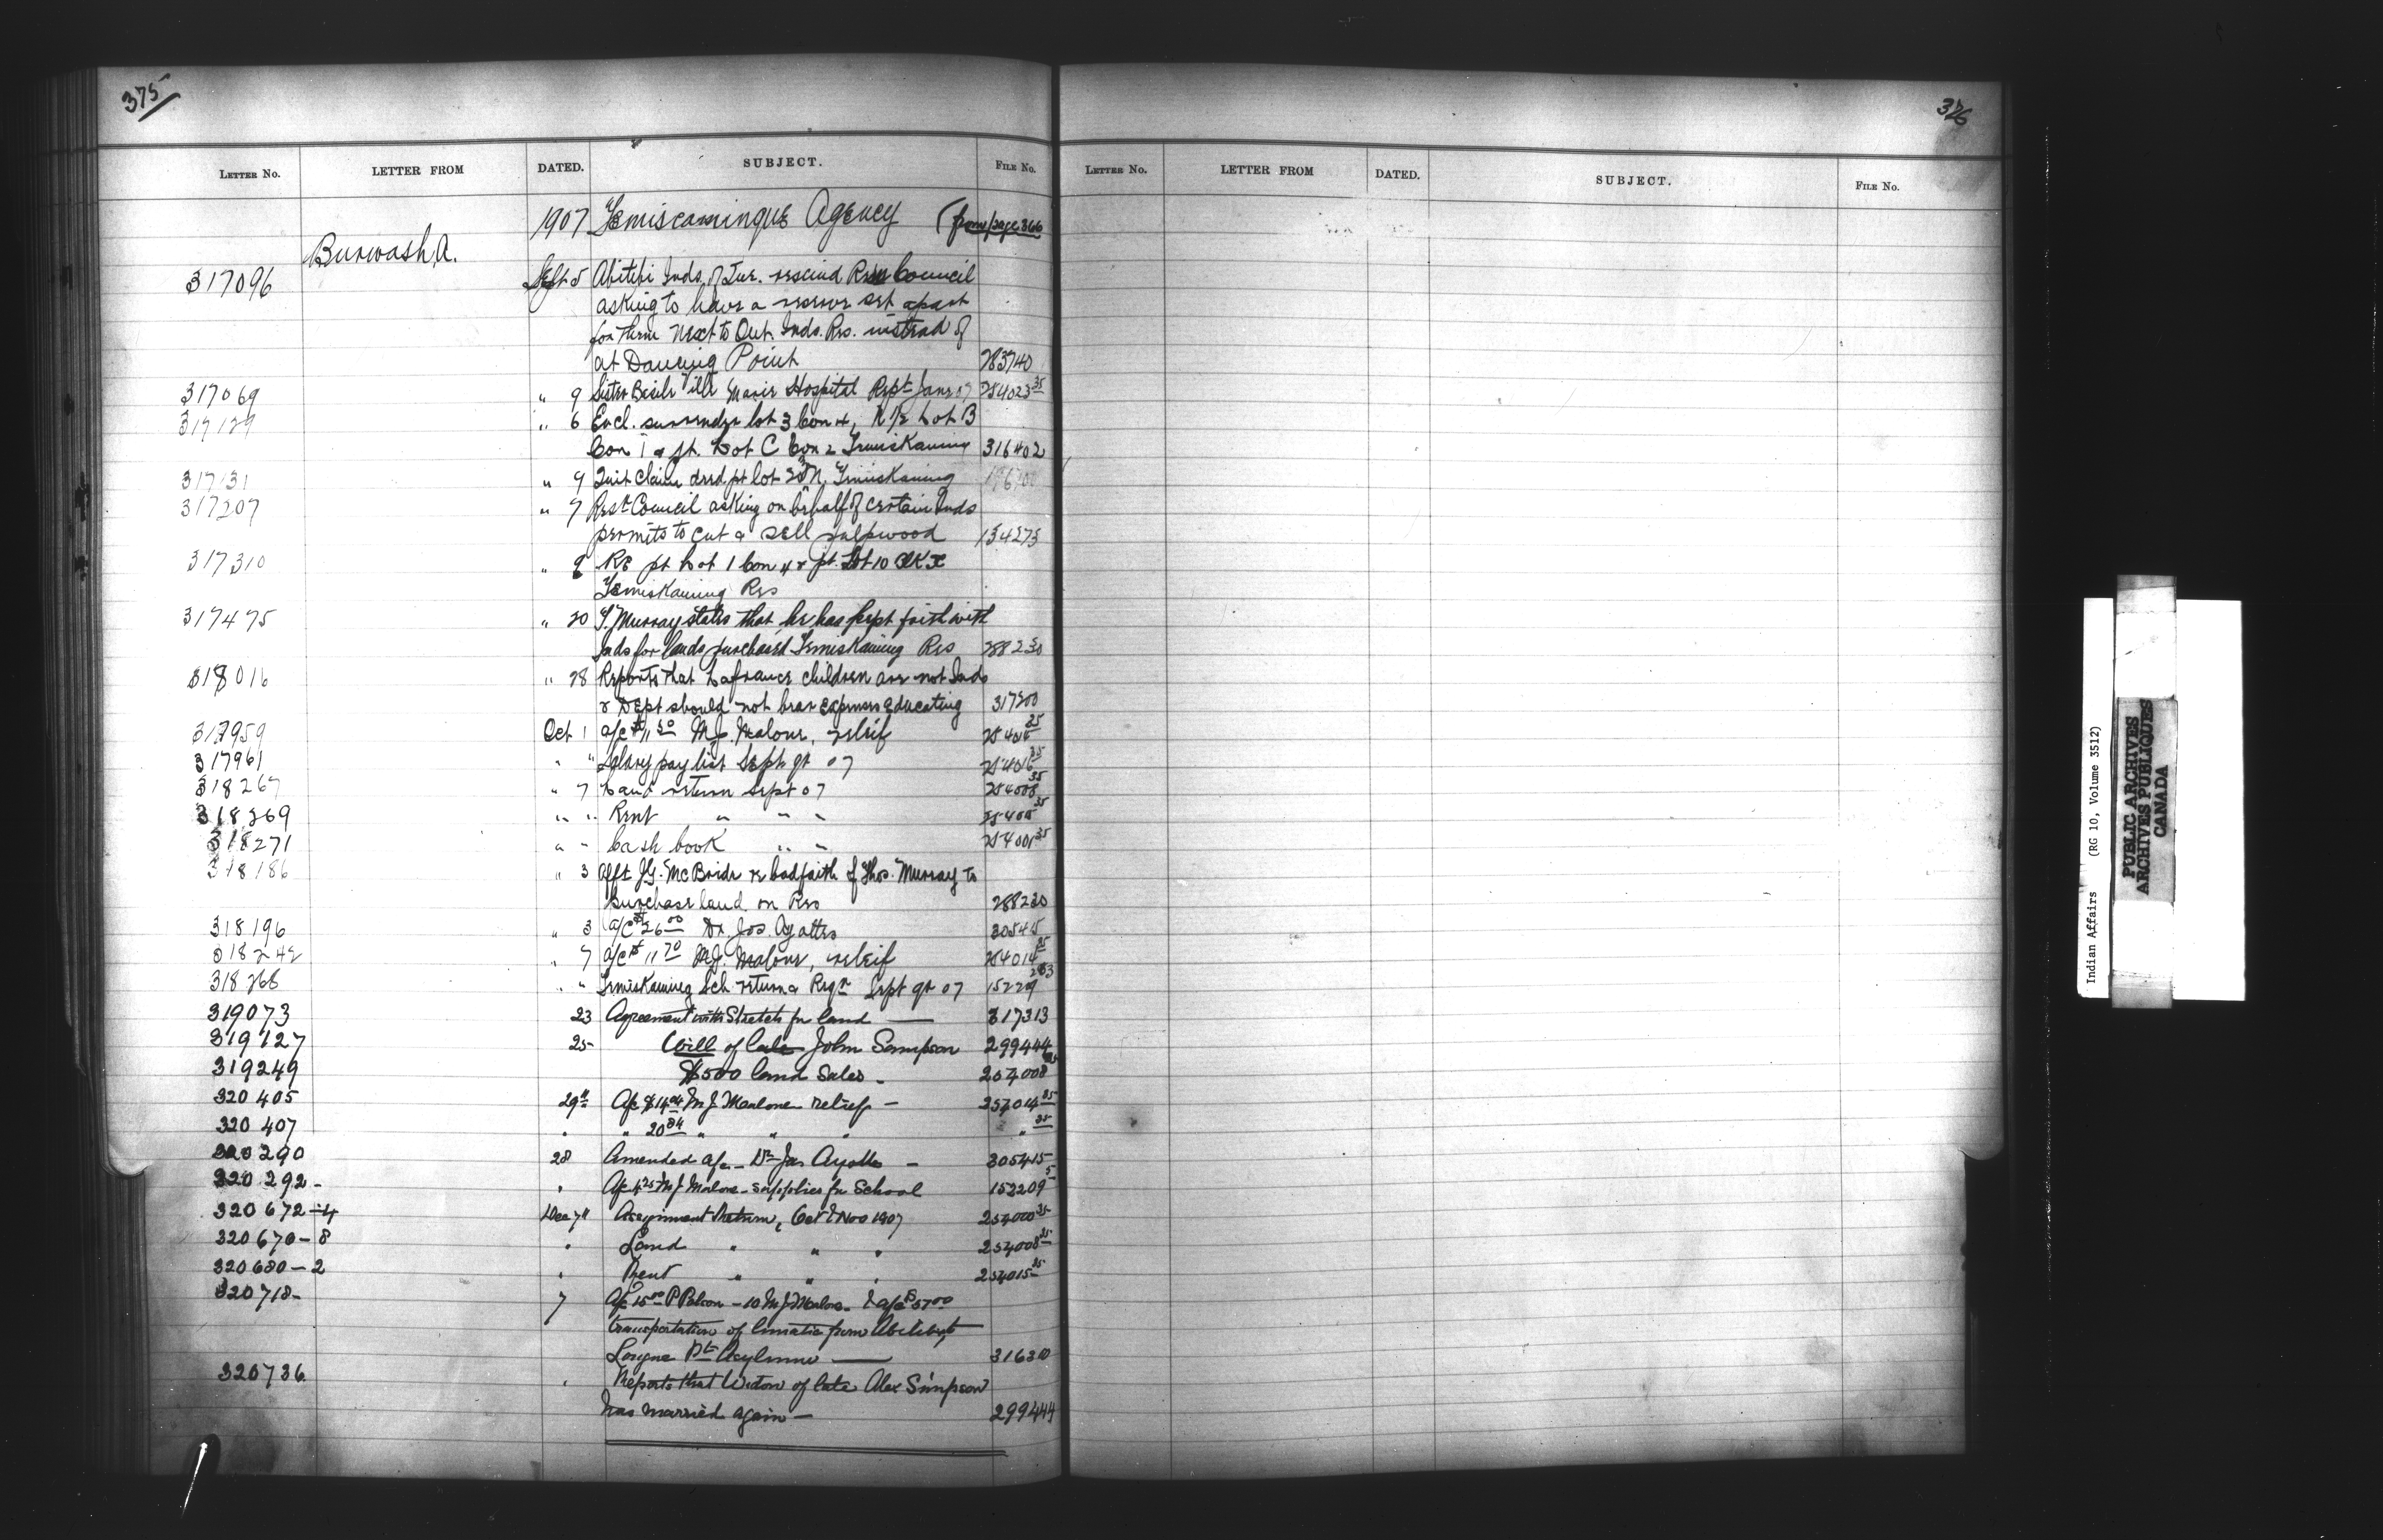 375
LETTER NO. LETTER FROM DATED. SUBJECT. FILE NO.
1907 Temiscamingue Agency (from page 366
Burwash, A.
317096 Sept 5 Abitibi Inds of Que. rescind Resn Council
asking to have a reserve set apart
for them next to Ont. Inds. Res. instead of
at Dancing Point 283740
317069 " 9 Sister Ville Marie Hospital Rept June 07 254023 35
317129 " 6 Encl. surrender lot 3 Con 4, N 1/2 Lot B
Con 1 & pt. Lot C Con 2 Temiskaming 316402
317131 " 9 Quit Claim deed pt lot N. Temiskaming
317207 " 7 Resn Council asking on behalf of certain Inds
permits to cut & sell pulpwood 154273
317310 " 9 Re pt Lot 1 Con 4 & pt. Lot 10
Temiskaming Res
317475 " 20 T. Murray states that he has kept faith with
Inds for lands purchased Temiskaming Res 288230
318016 " 28 Reports that Lafrance children are not Inds
& Dept should not bear expenses educating 317200
317959 Oct 1 a/c $11 50 M.J. Malone, releif 254014 35
317961 " " Salary pay list Sept qr 07 254016 35
318267 " 7 Land return Sept 07 254008 35
318269 " " Rent " " " 35
318271 " " Cash book " " 35
318186 " 3 Afft J.G. McBride re badfaith of Thos. Murray to
purchase land on Res 288230
318196 " 3 a/c $26 00 Dr. Jos. Ayottes 305415
318242 " 7 a/c $11 70 M.J. Malone, releif 254014 35
318268 " " Temiskaming Sch return & Reqn Sept qr 07
319073 23 Agreement with Stretch for land — 317313
319127 25 Will of late John Sampson 299444
319249 $500 land sales - 254008 35
320405 29th A/c $14 04 M J Manlone relief — 254014 35
320407 " " 20 84 " " " " 35
320290 28 Amended a/c — Dr Jos Ayotte — 305415
320292- " A/c 4 25 M J Malone - supplies for School 152209 5
320672-4 Dec 7th Assignment Return, Oct & Nov 1907 254000 35
320670-8 " Land " " " 254008 35
320680-2 " Rent " " " 254015 35
320718- 7 A/c 15 00 P Polson — 10 M J Malone & a/c $57 00
transportation of lunatic from Abitibi to
Longue Pte Asylum — 316310
320736 " Reports that Widow of late Alex Simpson
has married again — 299444
326
LETTER NO. LETTER FROM DATED. SUBJECT. FILE NO.
Indian Affairs (RG 10, Volume 3512)
PUBLIC ARCHIVES
ARCHIVES PUBLIQUES
CANADA